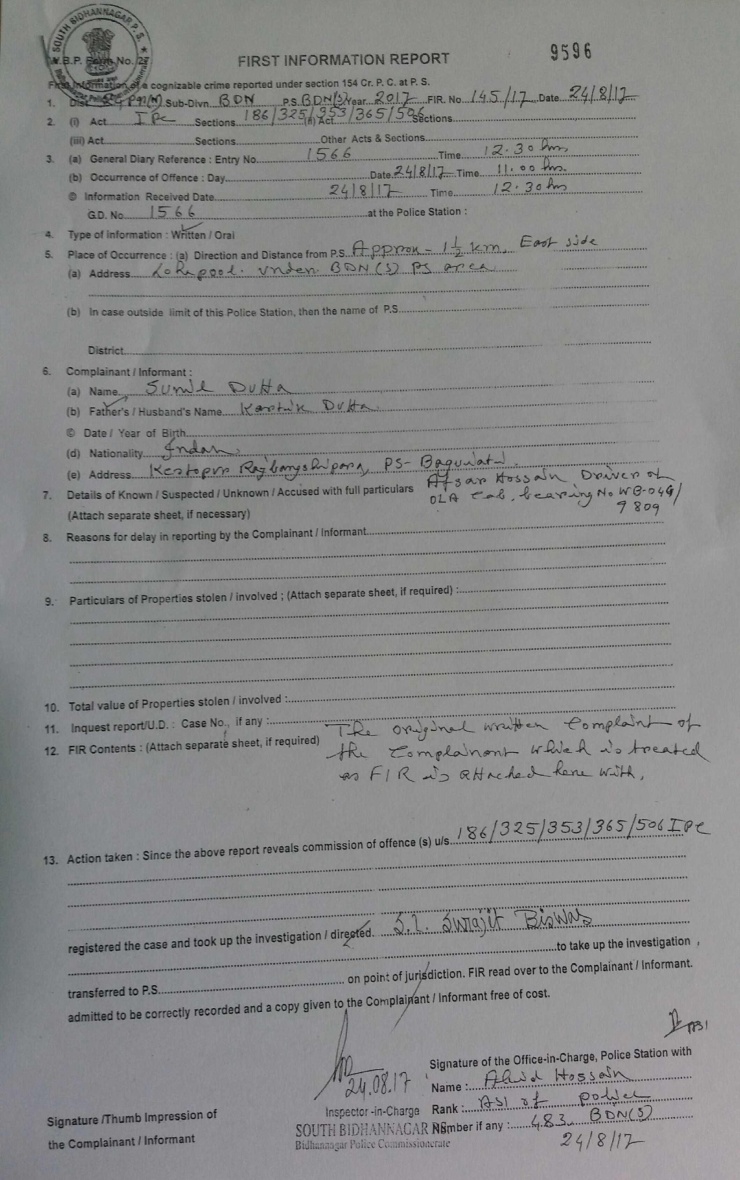 SOUTH BIDHANNAGAR P.S.
FIRST INFORMATION REPORT
9596
W.B.P. Form No. 27
First Information of a cognizable crime reported under section 154 Cr. P. C. at P. S.
1. Sub-Divn. BDN P.S. BDN(S) Year 2017 FIR. No 145/17 Date 24/8/17
2. (i) Act IPC Sections 186/325/353/365/506 (ii) Act Sections
(iii) Act Sections Other Acts & Sections
3. (a) General Diary Reference : Entry No 1566 Time 12.30 hrs
(b) Occurrence of Offence : Day Date 24/8/17 Time 11.00 hrs.
© Information Received Date 24/8/17 Time 12.30 hrs
G.D. No 1566 at the Police Station :
4. Type of Information : Written / Oral
5. Place of Occurrence : (a) Direction and Distance from P.S. Approx - 1½ km, East side
(a) Address Lohapool. under BDN(S) PS area
(b) In case outside limit of this Police Station, then the name of P.S.
District
6. Complainant / Informant :
(a) Name Sunil Dutta
(b) Father's / Husband's Name Kartik Dutta
© Date / Year of Birth
(d) Nationality Indan
(e) Address Kestopur Rajbangshipara, PS- Baguiati.
7. Details of Known / Suspected / Unknown / Accused with full particulars Afsar Hossain Driver of
(Attach separate sheet, if necessary) OLA cab, bearing No WB-04G/
9809
8. Reasons for delay in reporting by the Complainant / Informant
9. Particulars of Properties stolen / involved ; (Attach separate sheet, if required) :
10. Total value of Properties stolen / involved :
11. Inquest report/U.D. : Case No., if any :
12. FIR Contents : (Attach separate sheet, if required) The original written complaint of
the complainant which is treated
as FIR is attached here with,
13. Action taken : Since the above report reveals commission of offence (s) u/s 186/325/353/365/506 IPC
registered the case and took up the investigation / directed. S.I. Surajit Biswas
to take up the investigation ,
transferred to P.S. on point of jurisdiction. FIR read over to the Complainant / Informant.
admitted to be correctly recorded and a copy given to the Complainant / Informant free of cost.
24.08.17
Signature of the Office-in-Charge, Police Station with
Name : Ahid Hossain
Inspector -in-Charge Rank : ASI of police
SOUTH BIDHANNAGAR PS Number if any : 483 BDN(S)
Bidhannagar Police Commissionerate
24/8/17
Signature /Thumb Impression of
the Complainant / Informant